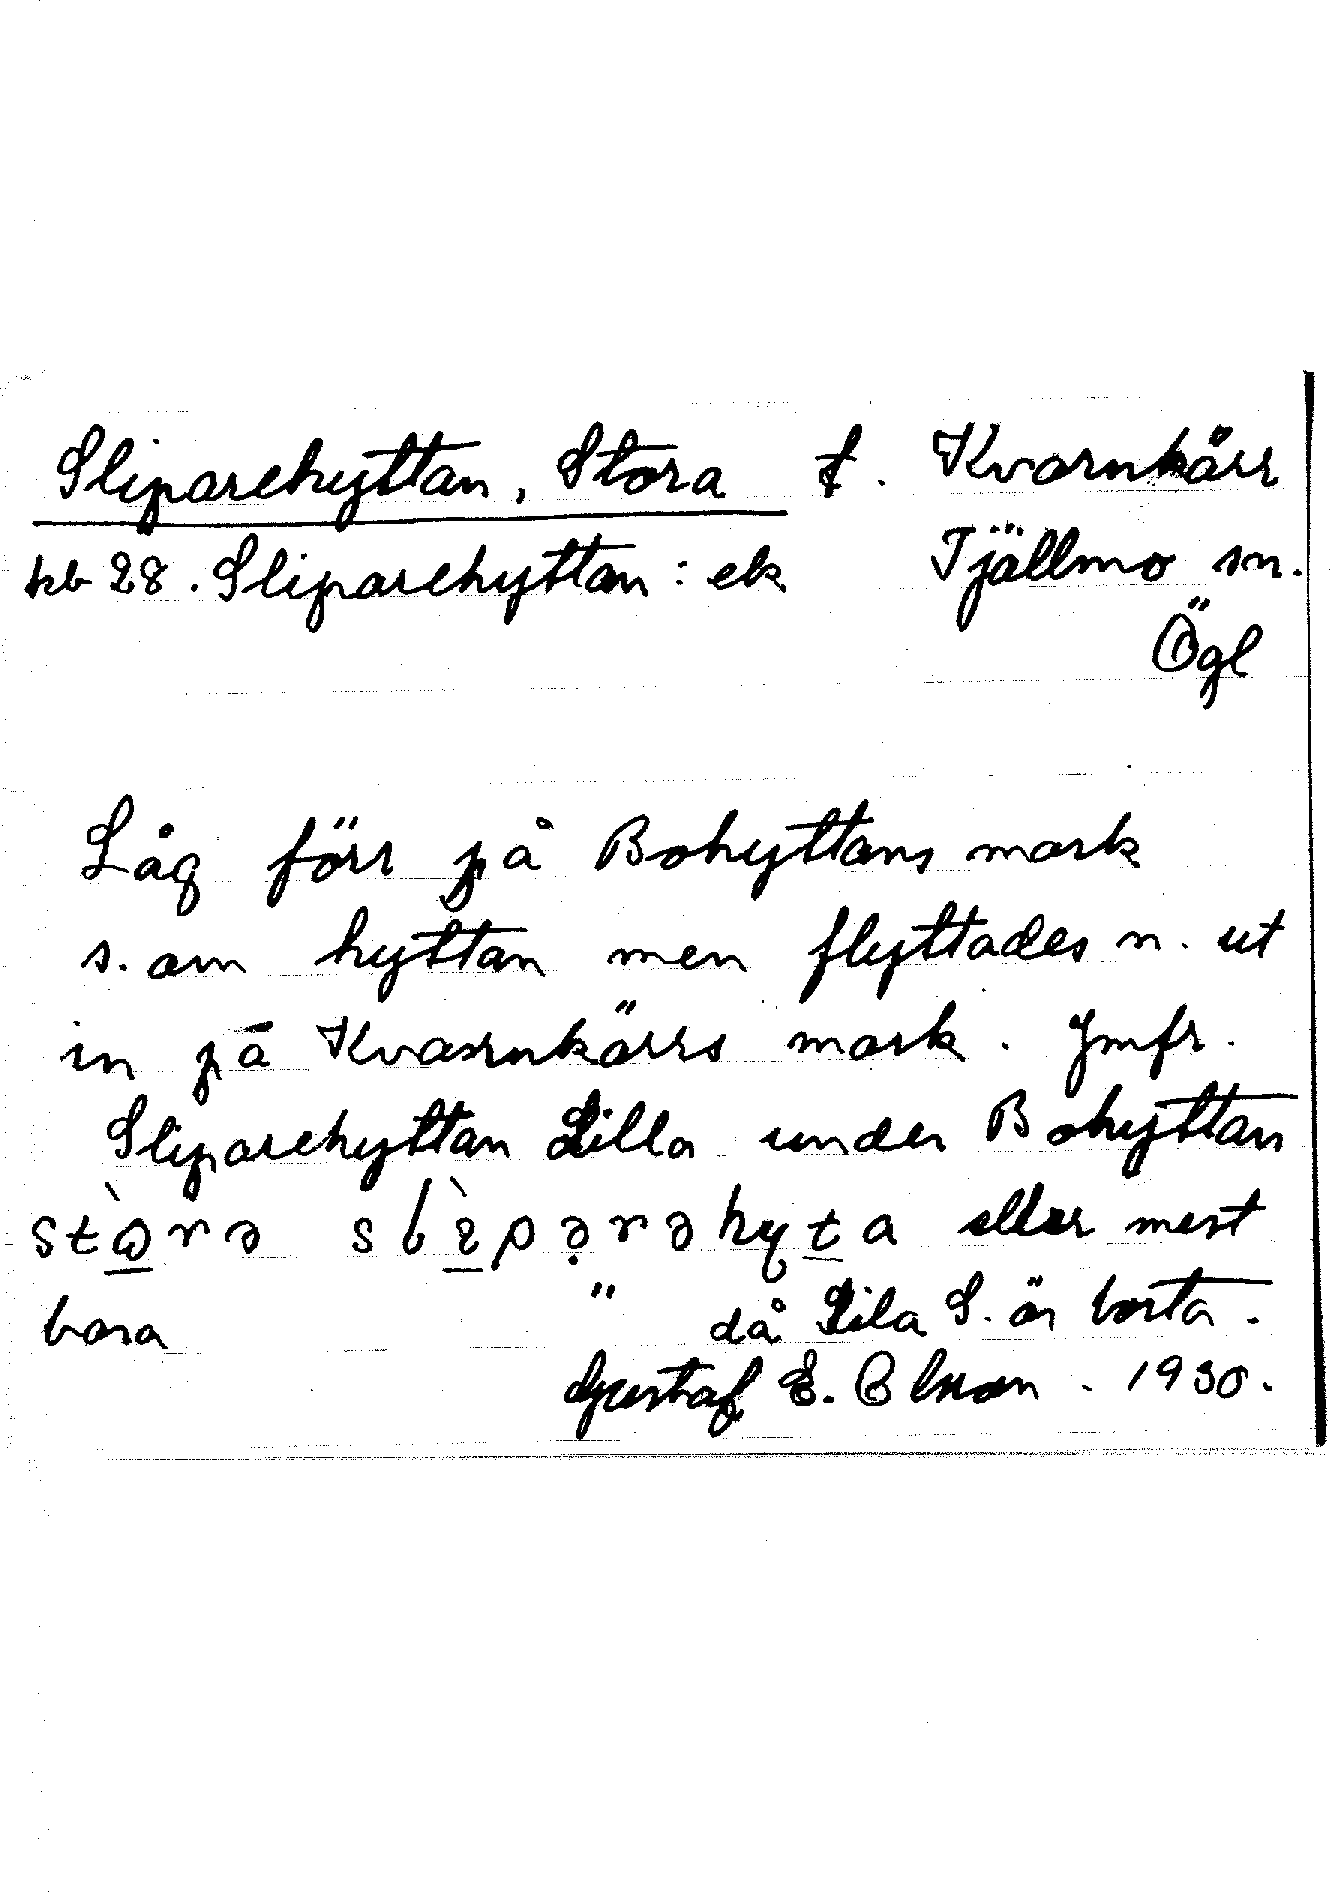 Sliparehyttan, Stora t. Kvarnkärr
kb 28. Sliparehyttan : ek Tjällmo sn.
Ögl
Låg förr på Bohyttans mark
s. om hyttan men flyttades n. ut
in på Kvarnkärrs mark. Jmfr.
Sliparehyttan Lilla under Bohyttan
eller mest
bara " då Lila S. är borta.
Gustaf E. 1930.